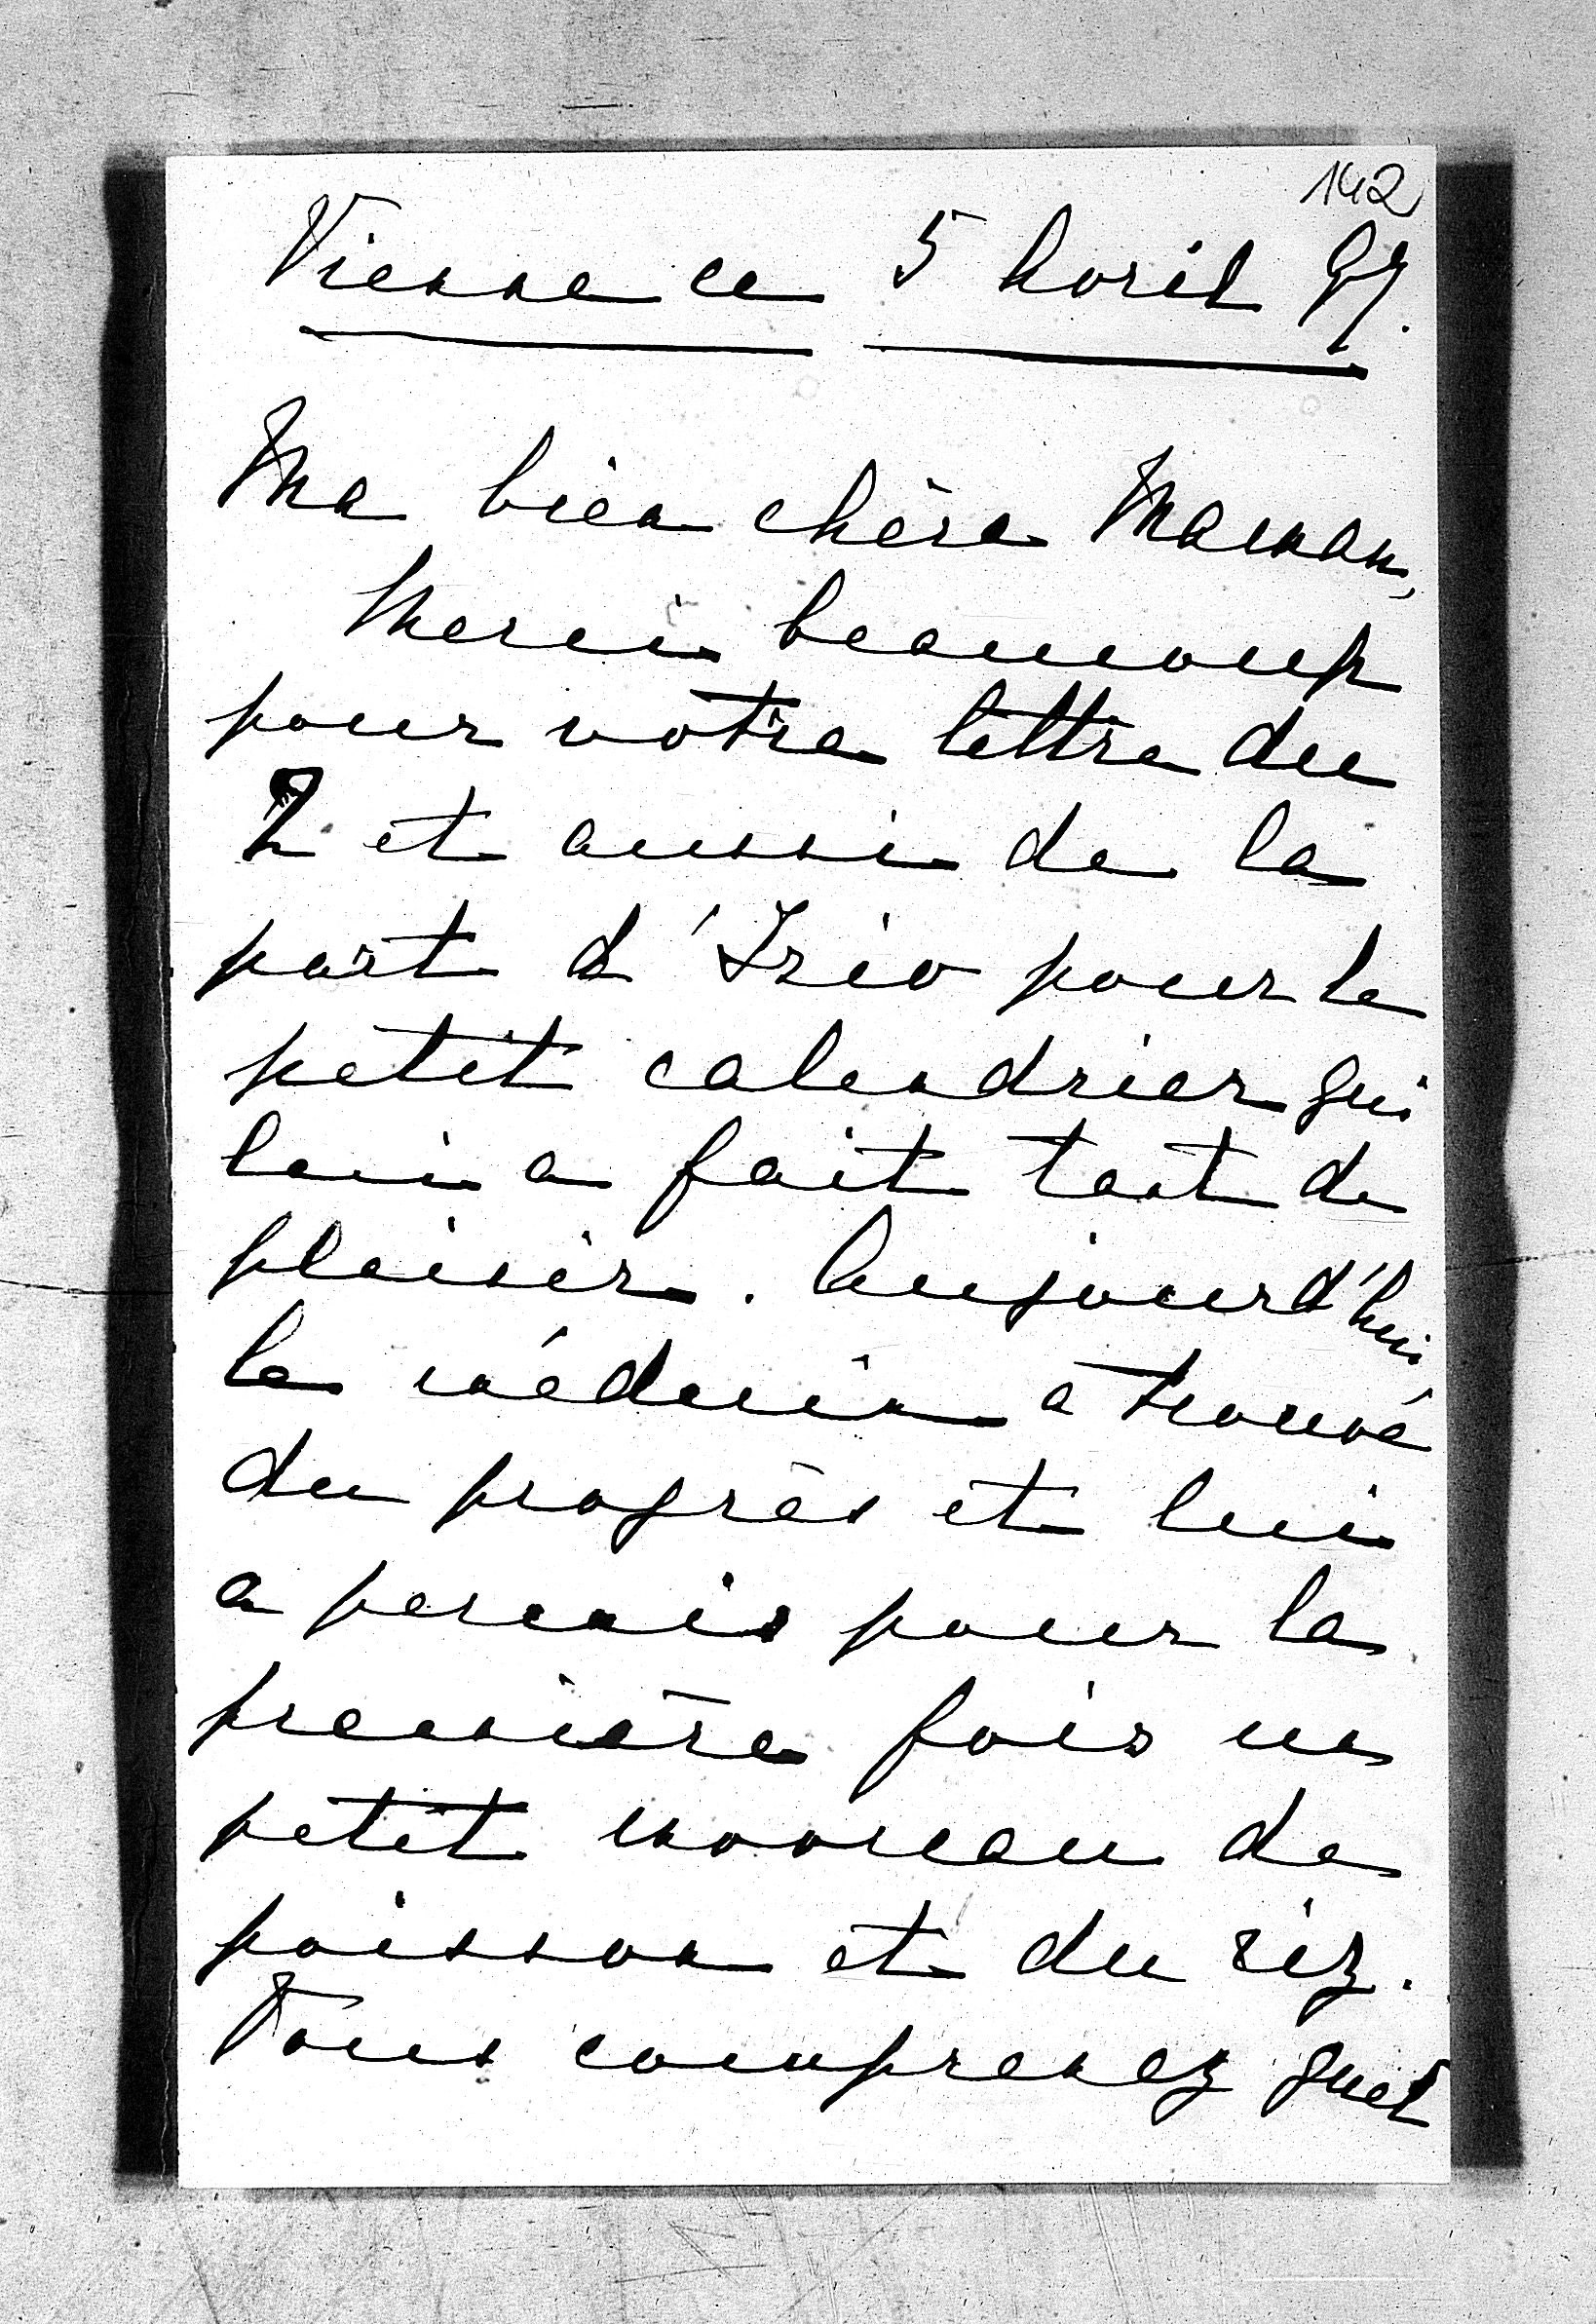 142
Vienne ce 5 Avril 97.
Ma bien chère Maman,
Merci beaucoup
pour votre lettre du
2 et aussi de la
part d'Izio pour le
petit calendrier qui
lui a fait tant de
plaisir. Aujourd'hui
le médecin a trouvé
du progrès et lui
a permis pour la
première fois un
petit morceau de
poisson et du riz.
Vous comprenez quel